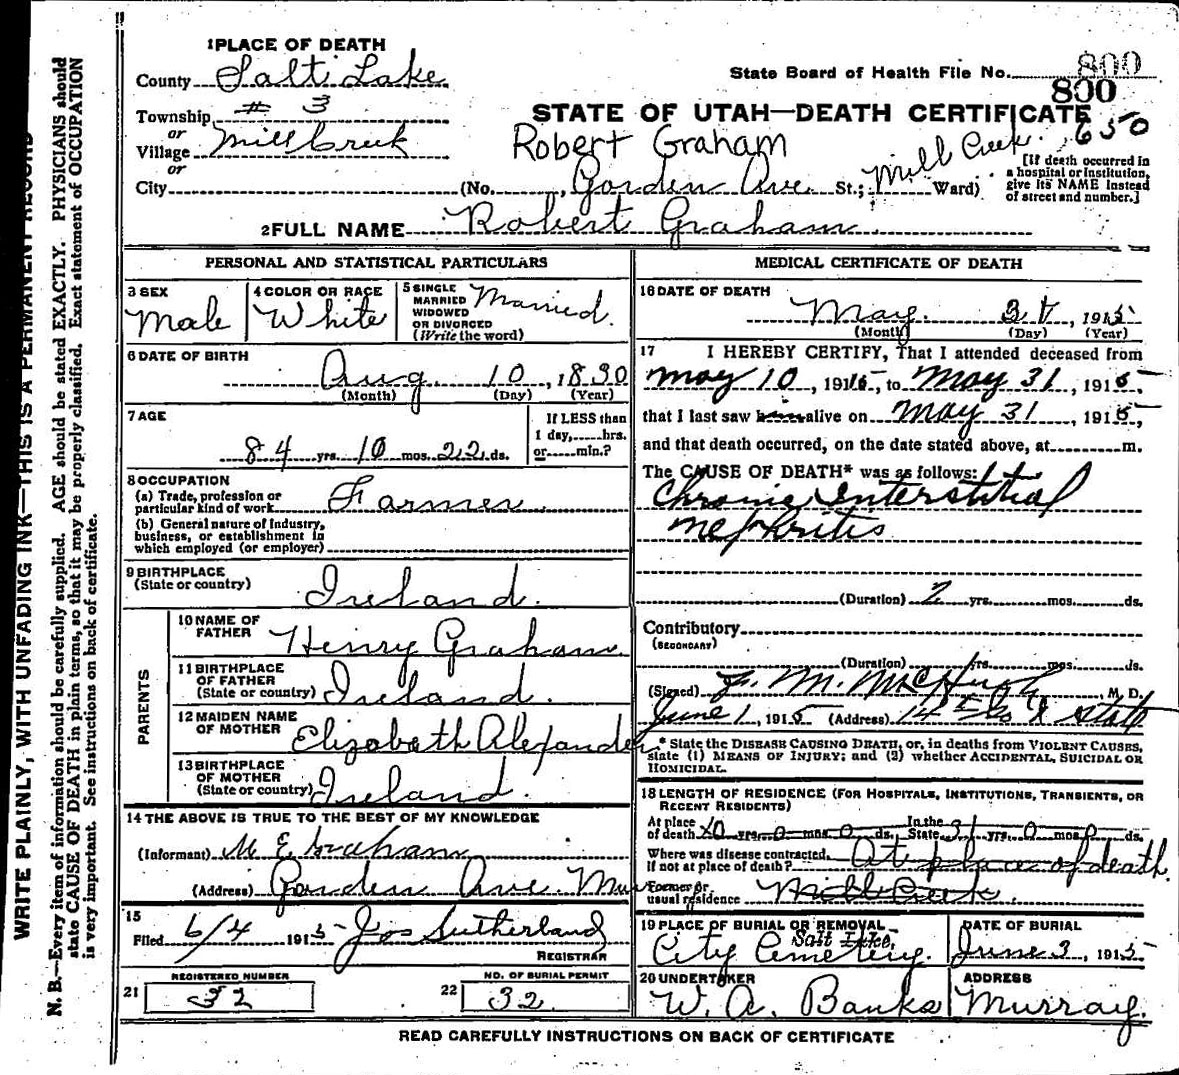 1 PLACE OF DEATH
County Salt Lake
State Board of Health File No. 800
800
Township # 3
or
Village Mill Creek
or
City
STATE OF UTAH—DEATH CERTIFICATE
650
Robert Graham
(No. , Gorden Ave. St.; Mill Creek. Ward)
[If death occurred in a hospital or institution, give its NAME instead of street and number.]
2 FULL NAME Robert Graham
PERSONAL AND STATISTICAL PARTICULARS
3 SEX Male
4 COLOR OR RACE White
5 SINGLE MARRIED WIDOWED OR DIVORCED (Write the word) Married.
6 DATE OF BIRTH
Aug. 10, 1830
(Month) (Day) (Year)
7 AGE
84 yrs. 10 mos. 22 ds.
If LESS than 1 day, hrs. or min.?
8 OCCUPATION
(a) Trade, profession or particular kind of work Farmer
(b) General nature of Industry, business, or establishment in which employed (or employer)
9 BIRTHPLACE
(State or country) Ireland.
PARENTS
10 NAME OF FATHER Henry Graham.
11 BIRTHPLACE OF FATHER (State or country) Ireland.
12 MAIDEN NAME OF MOTHER Elizabeth Alexander
13 BIRTHPLACE OF MOTHER (State or country) Ireland.
14 THE ABOVE IS TRUE TO THE BEST OF MY KNOWLEDGE
(Informant) M E Graham
(Address) Gorden Ave. Mur
15
Filed 6/4 1915 Jos Sutherland
REGISTRAR
REGISTERED NUMBER
21 32
NO. OF BURIAL PERMIT
22 32
MEDICAL CERTIFICATE OF DEATH
16 DATE OF DEATH
May. 31, 1915
(Month) (Day) (Year)
17 I HEREBY CERTIFY, That I attended deceased from
May 10, 1915, to May 31, 1915,
that I last saw him alive on May 31, 1915,
and that death occurred, on the date stated above, at m.
The CAUSE OF DEATH* was as follows:
Chronic Interstitial
Nephritis
(Duration) 2 yrs. mos. ds.
Contributory
(SECONDARY)
(Duration) yrs. mos. ds.
(Signed) J. M. McHugh, M. D.
June 1, 1915 (Address) State
* State the DISEASE CAUSING DEATH, or, in deaths from VIOLENT CAUSES,
state (1) MEANS OF INJURY; and (2) whether ACCIDENTAL, SUICIDAL OR
HOMICIDAL.
18 LENGTH OF RESIDENCE (FOR HOSPITALS, INSTITUTIONS, TRANSIENTS, OR
RECENT RESIDENTS)
At place of death yrs. 0 mos. 0 ds. In the State 31 yrs. 0 mos. 0 ds.
Where was disease contracted, if not at place of death? At place of death.
Former or usual residence Mill Creek.
19 PLACE OF BURIAL OR REMOVAL
Salt Lake,
City Cemetery.
DATE OF BURIAL
June 3, 1915
20 UNDERTAKER
W. A. Banks
ADDRESS
Murray.
READ CAREFULLY INSTRUCTIONS ON BACK OF CERTIFICATE
WRITE PLAINLY, WITH UNFADING INK—THIS IS A PERMANENT RECORD
N. B.—Every item of information should be carefully supplied. AGE should be stated EXACTLY. PHYSICIANS should
state CAUSE OF DEATH in plain terms, so that it may be properly classified. Exact statement of OCCUPATION
is very important. See instructions on back of certificate.